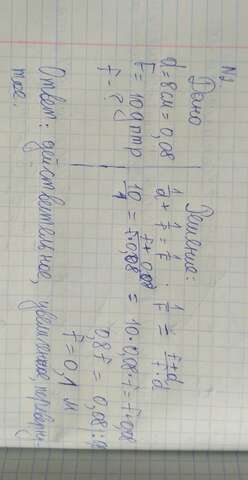 №2
Дано
d = 8 см = 0,08
F = 10 дптр
f - ?
Решение:
1/d + 1/f = 1/F · 1/F = f+d/f·d
10/1 = f+0,08/f·0,08 = 10·0,08·f = f+0,08
0,8f = 0,08:8
f = 0,1 м
Ответ: действительное, увеличенное,